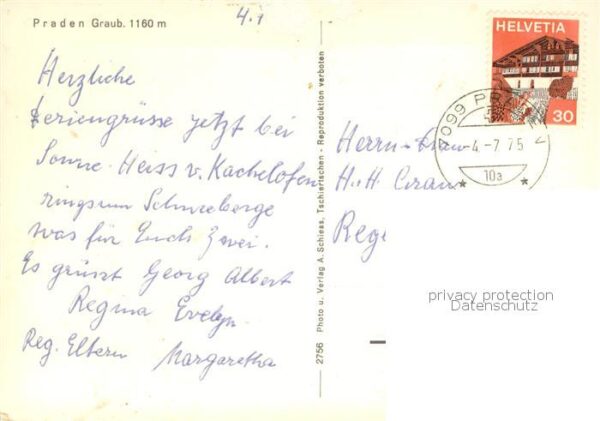 Praden Graub. 1160 m
4.1
Herzliche
Feriengrüsse jetzt bei
Sonne. Heiss v. Kachelofen
ringsum Schneeberge
was für Euch Zwei.
Es grüsst Georg Albert
Regina Evelyn.
Reg. Eltern Margaretha
2756 Photo u. Verlag A. Schiess, Tschiertschen - Reproduktion verboten
HELVETIA
30
7099 P
-4.-7.75
10a
Herrn
H.+H.
privacy protection
Datenschutz